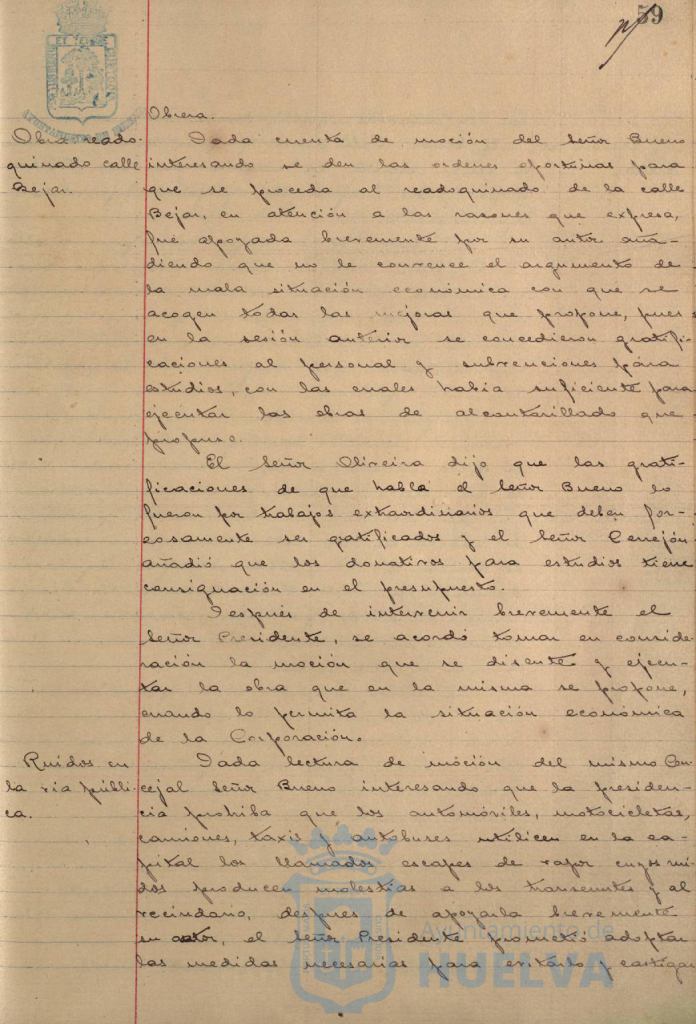 59
Obrera.
Obra readoquinado calle Bejar.
Dada cuenta de moción del Señor Bueno
interesando se den las ordenes oportunas para
que se proceda al readoquinado de la calle
Bejar, en atención a las razones que expresa,
fué apoyada brevemente por su autor aña-
diendo que no le convence el argumento de
la mala situación económica con que se
acogen todas las mejoras que propone, pues
en la sesión anterior se concedieron gratifi-
caciones al personal y subvenciones para
estudios, con las cuales habia suficiente para
ejecutar las obras de alcantarillado que
propuse.
El Señor Oliveira dijo que las grati-
ficaciones de que habla el Señor Bueno lo
fueron por trabajos extraordinarios que deben for-
zosamente ser gratificados y el Señor Cerrejón
añadió que los donativos para estudios tiene
consignación en el presupuesto.
Después de intervenir brevemente el
Señor Presidente, se acordó tomar en conside-
ración la moción que se discute y ejecu-
tar la obra que en la misma se propone,
cuando lo permita la situación económica
de la Corporación.
Ruidos en
la via públi-
ca.
Dada lectura de moción del mismo Con-
cejal Señor Bueno interesando que la presiden-
cia prohiba que los automóviles, motocicletas,
camiones, taxis y autobuses utilicen en la ca-
pital los llamados escapes de vapor cuyos rui-
dos producen molestias a los transeuntes y al
vecindario, despues de apoyarla brevemente
su autor, el Señor Presidente prometió adoptar
las medidas necesarias para evitarlo y castigar
Ayuntamiento de
HUELVA